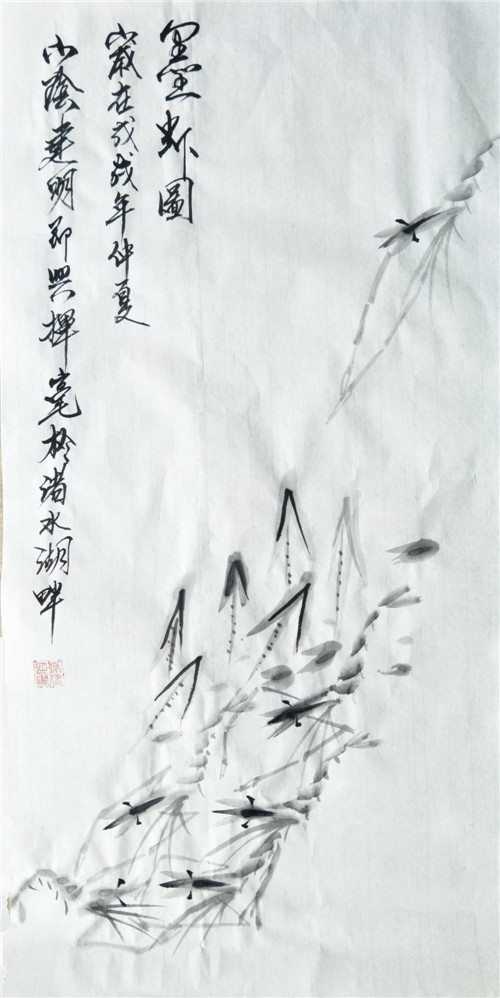 墨虾圖
歲在戊戌年仲夏
山陰建明即興揮毫於渚水湖畔